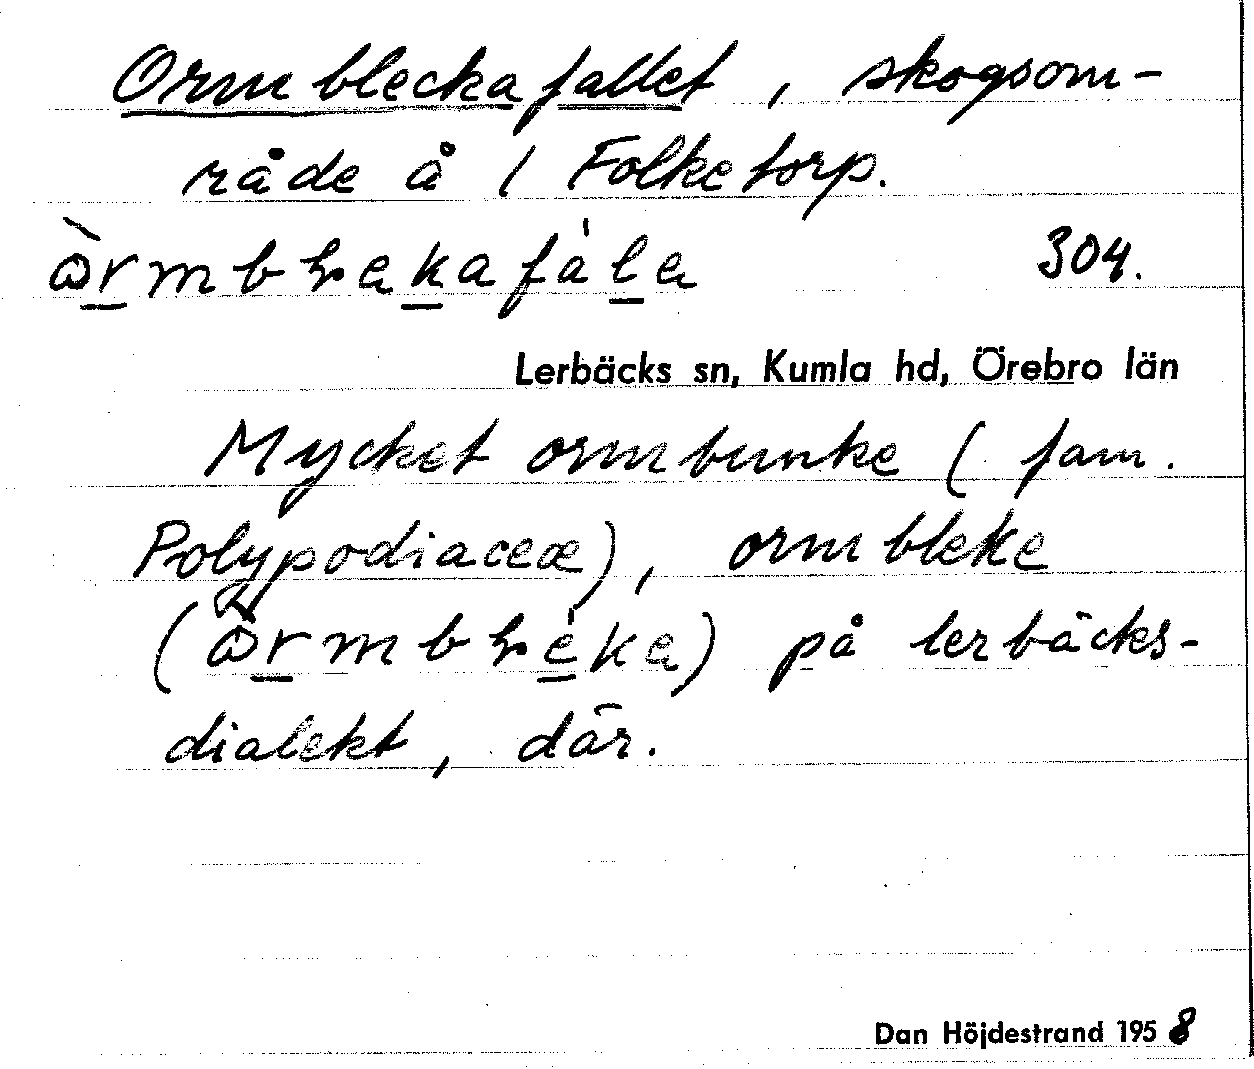 Ormbleckafallet, skogsom-
råde å 1 Folketorp.
304.
Lerbäcks sn, Kumla hd, Örebro län
Mycket ormbunke (fam.
Polypodiaceæ), ormbleke
på lerbäcks-
dialekt, där.
Dan Höjdestrand 1958